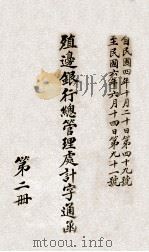 自民國四年十月二十日第四十九號
至民國六年六月十四日第九十一號
殖邊銀行總管理處計字通函
第二冊